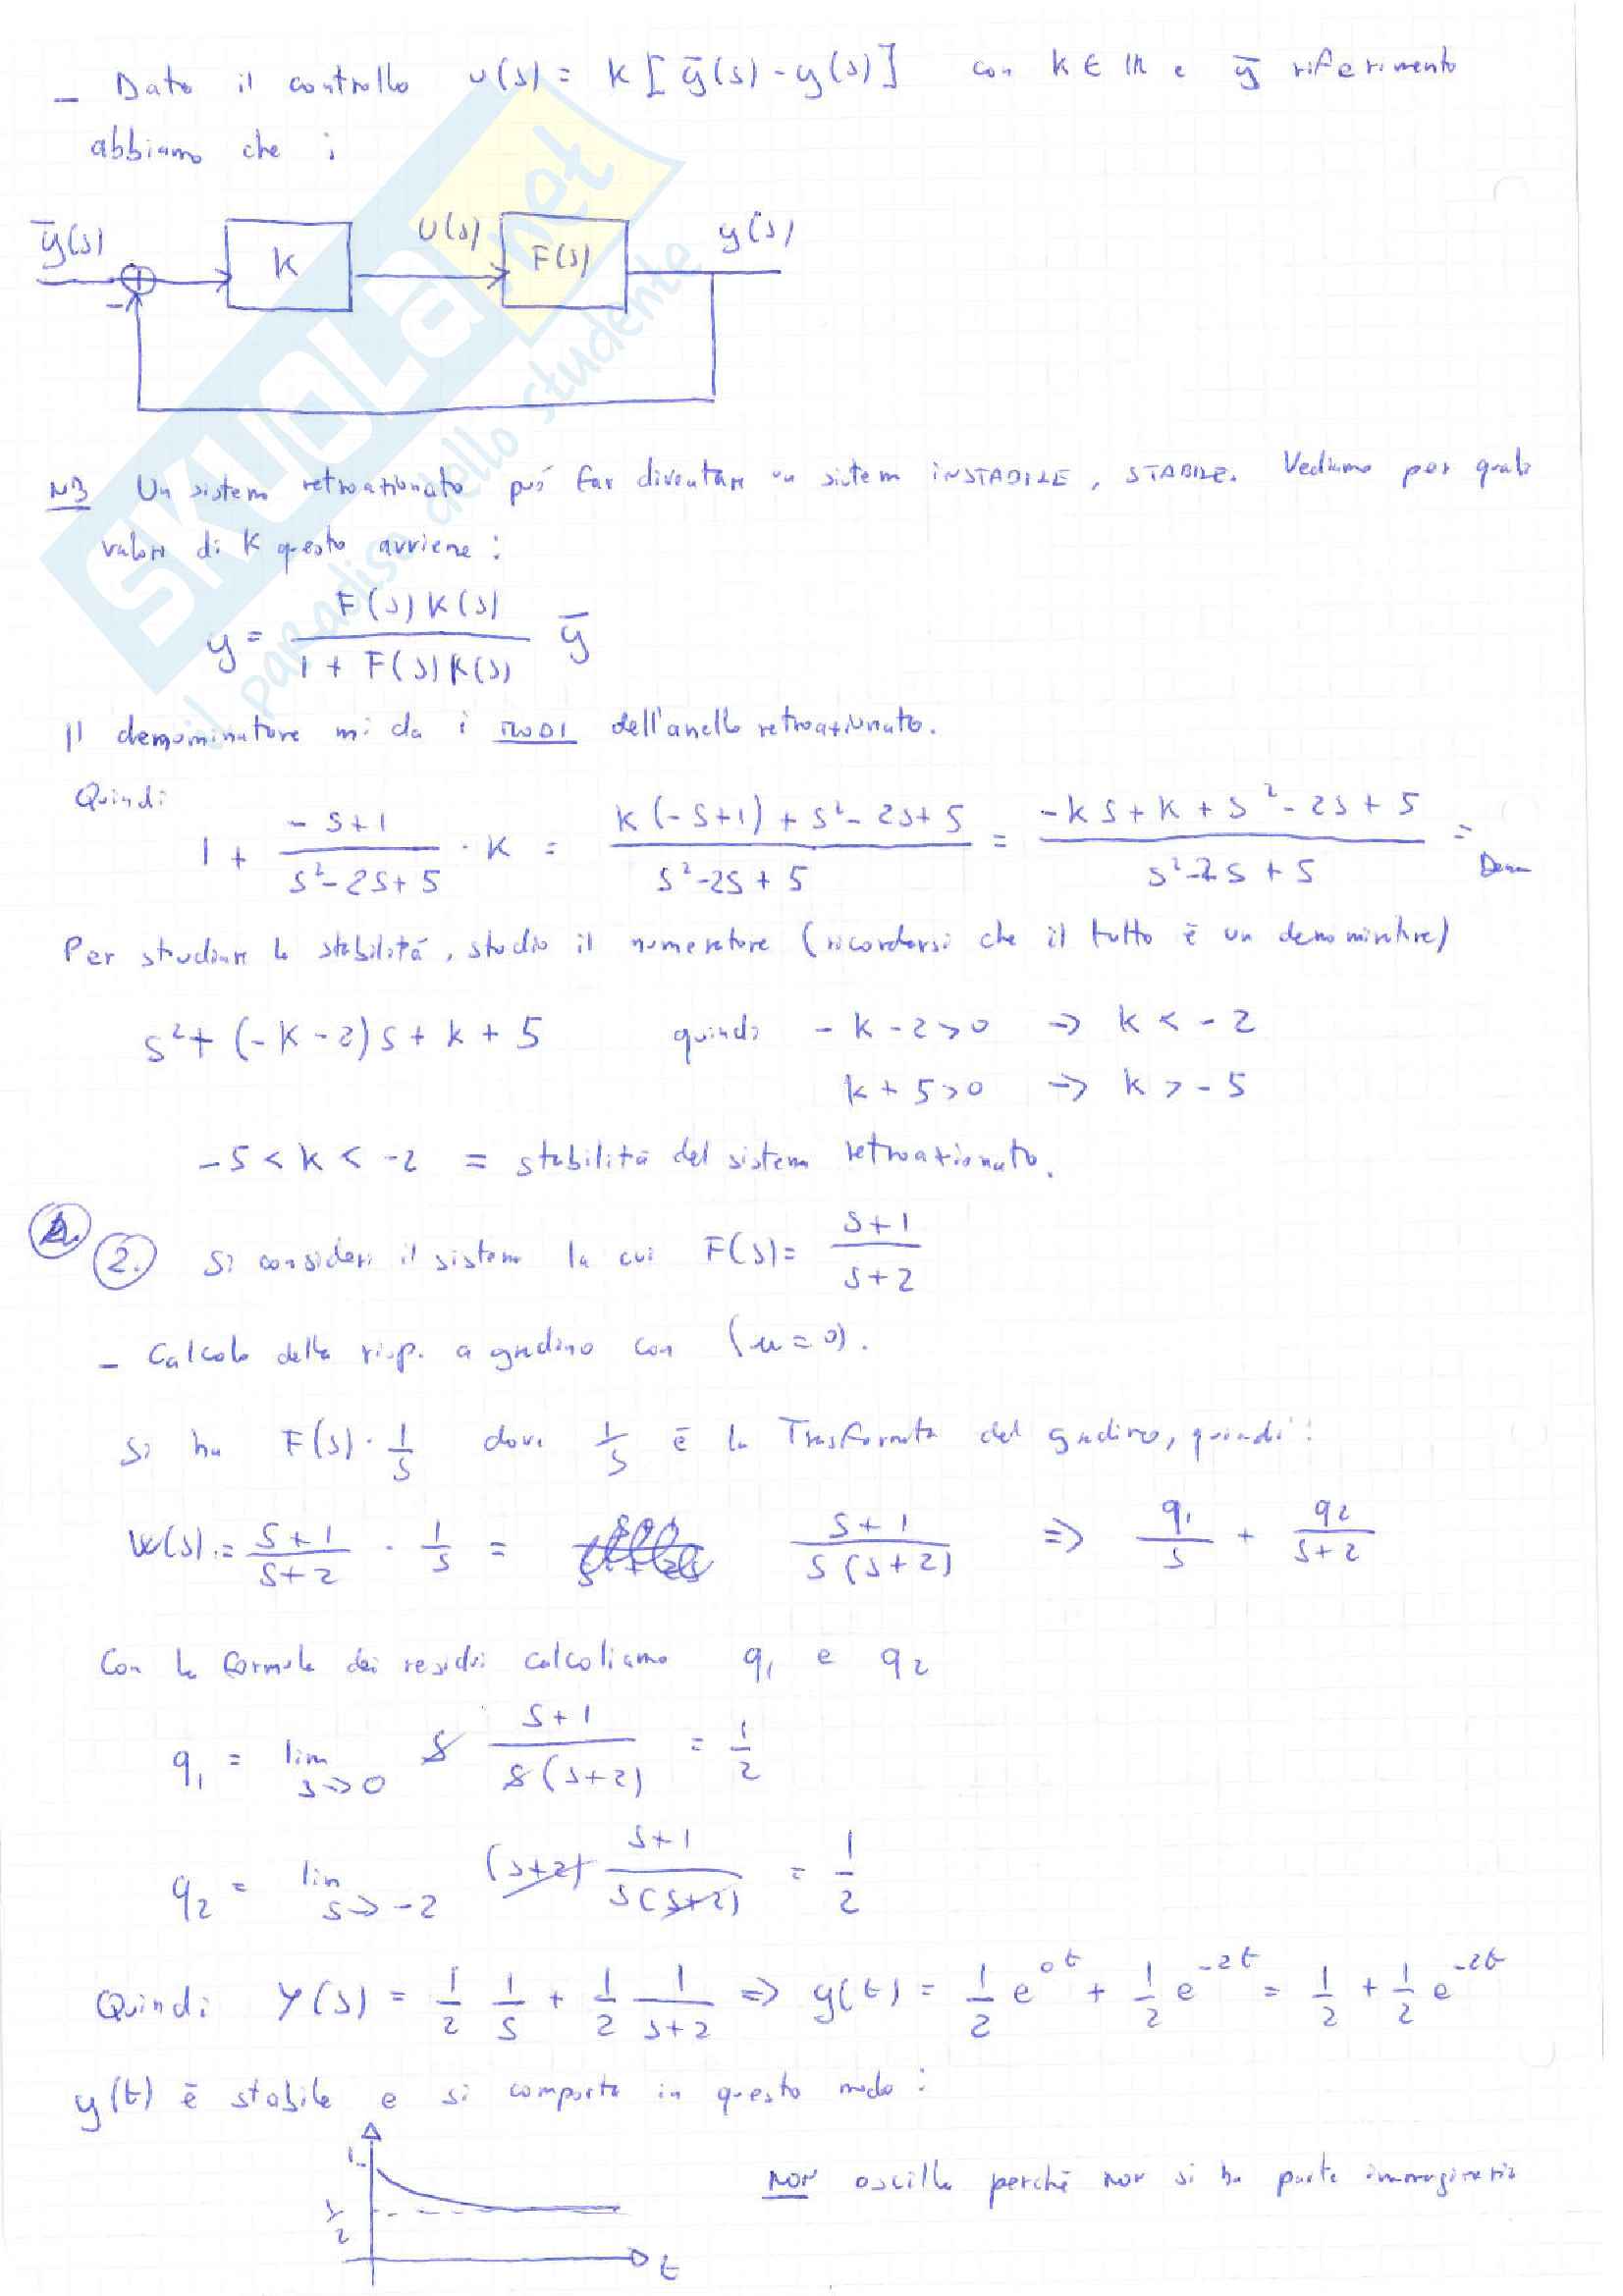 - Dato il controllo u(s) = K [ȳ(s) - y(s)] con K ∈ ℝ e ȳ riferimento
abbiamo che :
ȳ(s) K U(s) F(s) y(s)
-
SKUOLA.net
il paradiso dello studente
NB Un sistem retroazionato può far diventare un sistem INSTABILE, STABILE. Vediamo per quale
valori di K questo avviene :
y = F(s)K(s) / 1 + F(s)K(s) ȳ
Il denominatore mi da i MODI dell'anello retroazionato.
Quindi
1 + (-s+1)/(s²-2s+5) · K = (K(-s+1) + s²-2s+5)/(s²-2s+5) = (-Ks + K + s² - 2s + 5)/(s²-2s+5) = Den
Per studiare la stabilità, studio il numeratore (ricordarsi che il tutto è un denominatore)
s² + (-K-2)s + K + 5 quindi -K-2>0 => K < -2
K + 5>0 => K > -5
-5 < K < -2 = stabilità del sistema retroazionato.
2. Si consideri il sistema la cui F(s) = (s+1)/(s+2)
- Calcolo della risp. a gradino con (u=0).
Si ha F(s) · 1/s dove 1/s è la Trasformata del gradino, quindi :
W(s) = (s+1)/(s+2) · 1/s = (s+1)/(s(s+2)) => q₁/s + q₂/(s+2)
Con la formula dei residui calcoliamo q₁ e q₂
q₁ = lim s→0 s (s+1)/(s(s+2)) = 1/2
q₂ = lim s→-2 (s+2) (s+1)/(s(s+2)) = 1/2
Quindi Y(s) = 1/2 1/s + 1/2 1/(s+2) => y(t) = 1/2 e^0t + 1/2 e^-2t = 1/2 + 1/2 e^-2t
y(t) è stabile e si comporta in questo modo :
1
NON oscilla perchè non si ha parte immaginaria
1/2
t